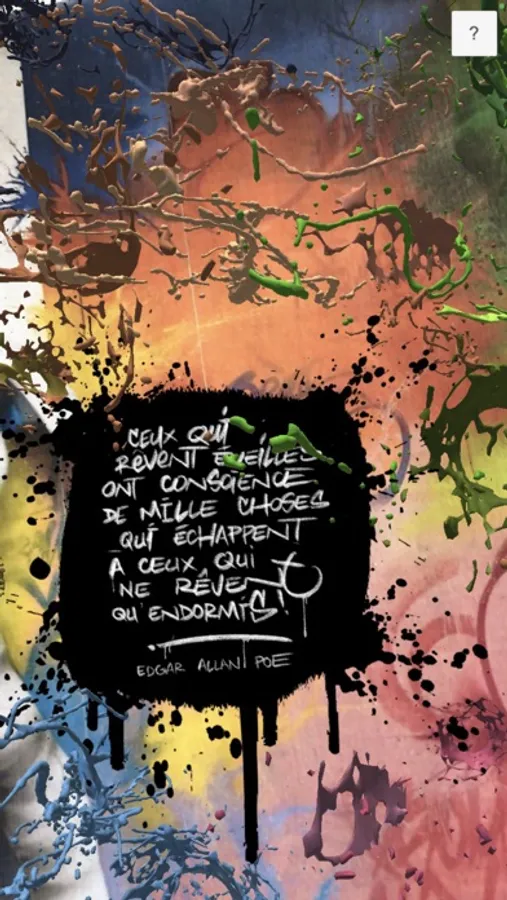 ?
CEUX QUI
RÊVENT ÉVEILLÉS
ONT CONSCIENCE
DE MILLE CHOSES
QUI ÉCHAPPENT
A CEUX QUI
NE RÊVENT
QU'ENDORMIS!
EDGAR ALLAN POE